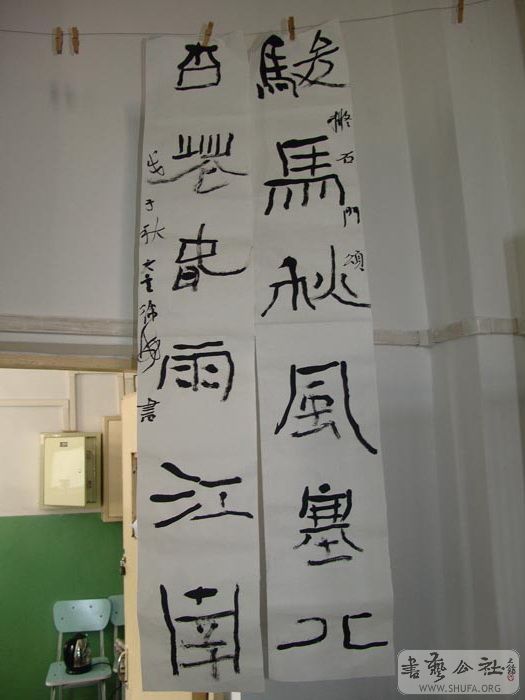 駿馬秋風塞北
擬石門頌
杏花春雨江南
戊子秋大連徐
書
書藝公社
WWW.SHUFA.ORG